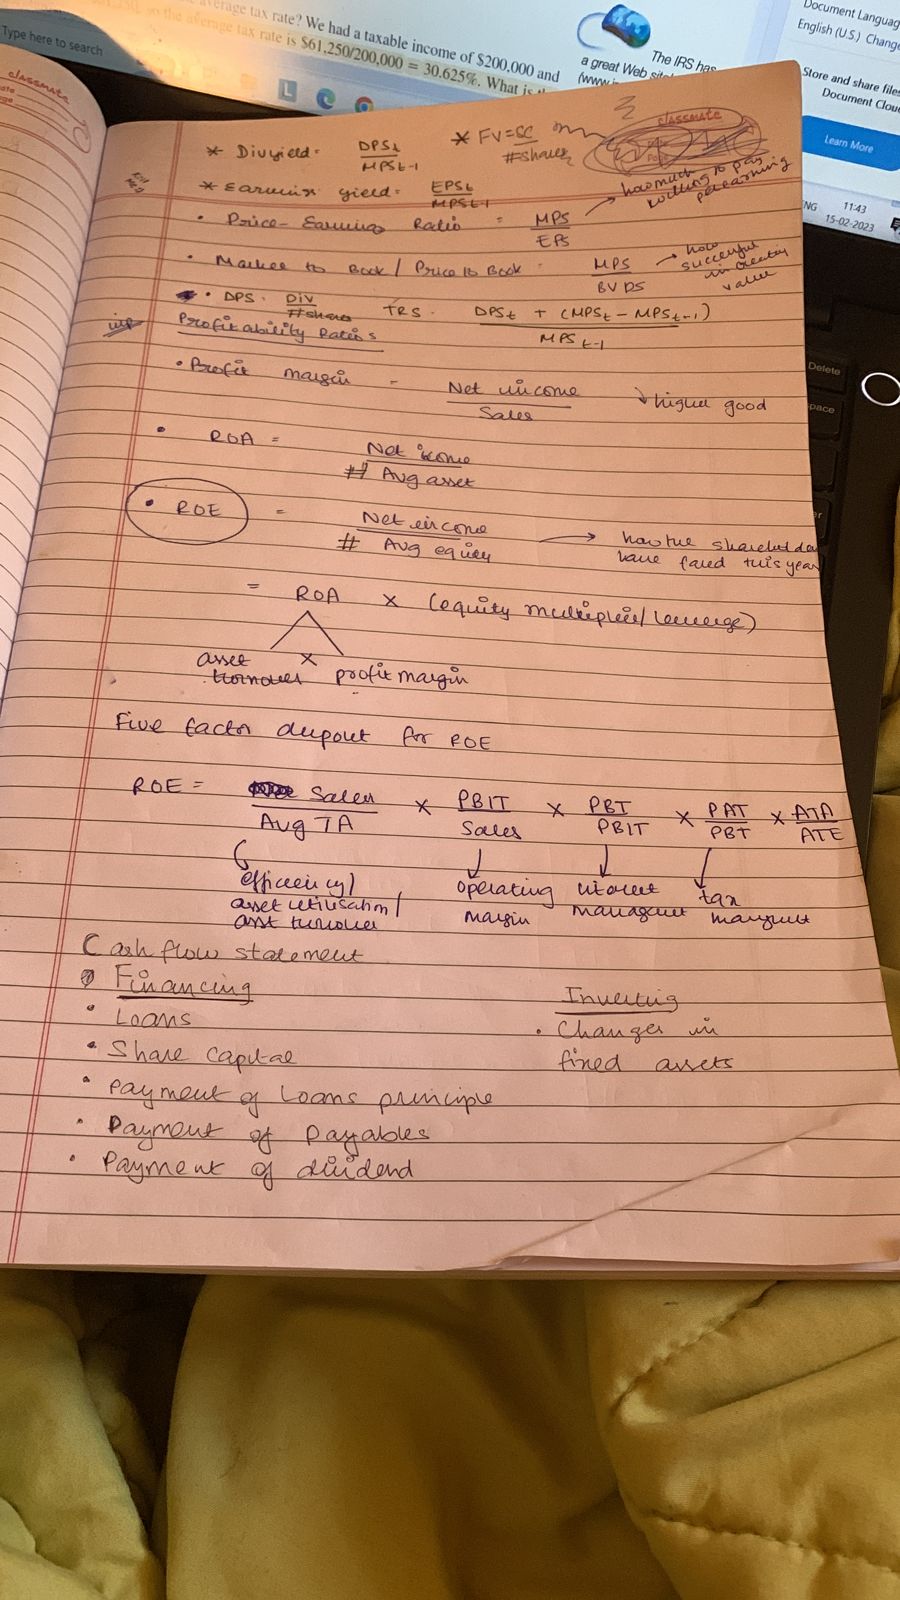 average tax rate? We had a taxable income of $200,000 and
the average tax rate is $61,250/200,000 = 30.625%. What is
The IRS has
a great Web site
(www.i
Document Languag
English (U.S.) Change
Store and share files
Document Clou
Learn More
Type here to search
11:43
15-02-2023
classmate
classmate
* Div yield = DPSt / MPSt-1
* FV = SC / #shares
* Earning yield = EPSt / MPSt-1
• Price-Earnings Ratio = MPS / EPS → how much willing to pay per earning
• Market to Book / Price to Book = MPS / BVPS → how successful in creating value
• DPS = Div / #shares TRS = DPSt + (MPSt - MPSt-1) / MPSt-1
imp
Profitability Ratios
• Profit margin = Net income / Sales ↓ higher good
• ROA = Net income / # Avg asset
• ROE = Net income / # Avg equity → how the shareholders have fared this year
= ROA x (equity multiplier/leverage)
asset turnover x profit margin
Five factor dupont for ROE
ROE = Sales / Avg TA x PBIT / Sales x PBT / PBIT x PAT / PBT x ATA / ATE
efficiency/ asset utilisation/ asset turnover
operating margin
interest management
tax
Cash flow statement
Financing
• Loans
• Share capital
• Payment of loans principle
• Payment of payables
• Payment of dividend
Investing
• Changes in
fixed assets
Delete